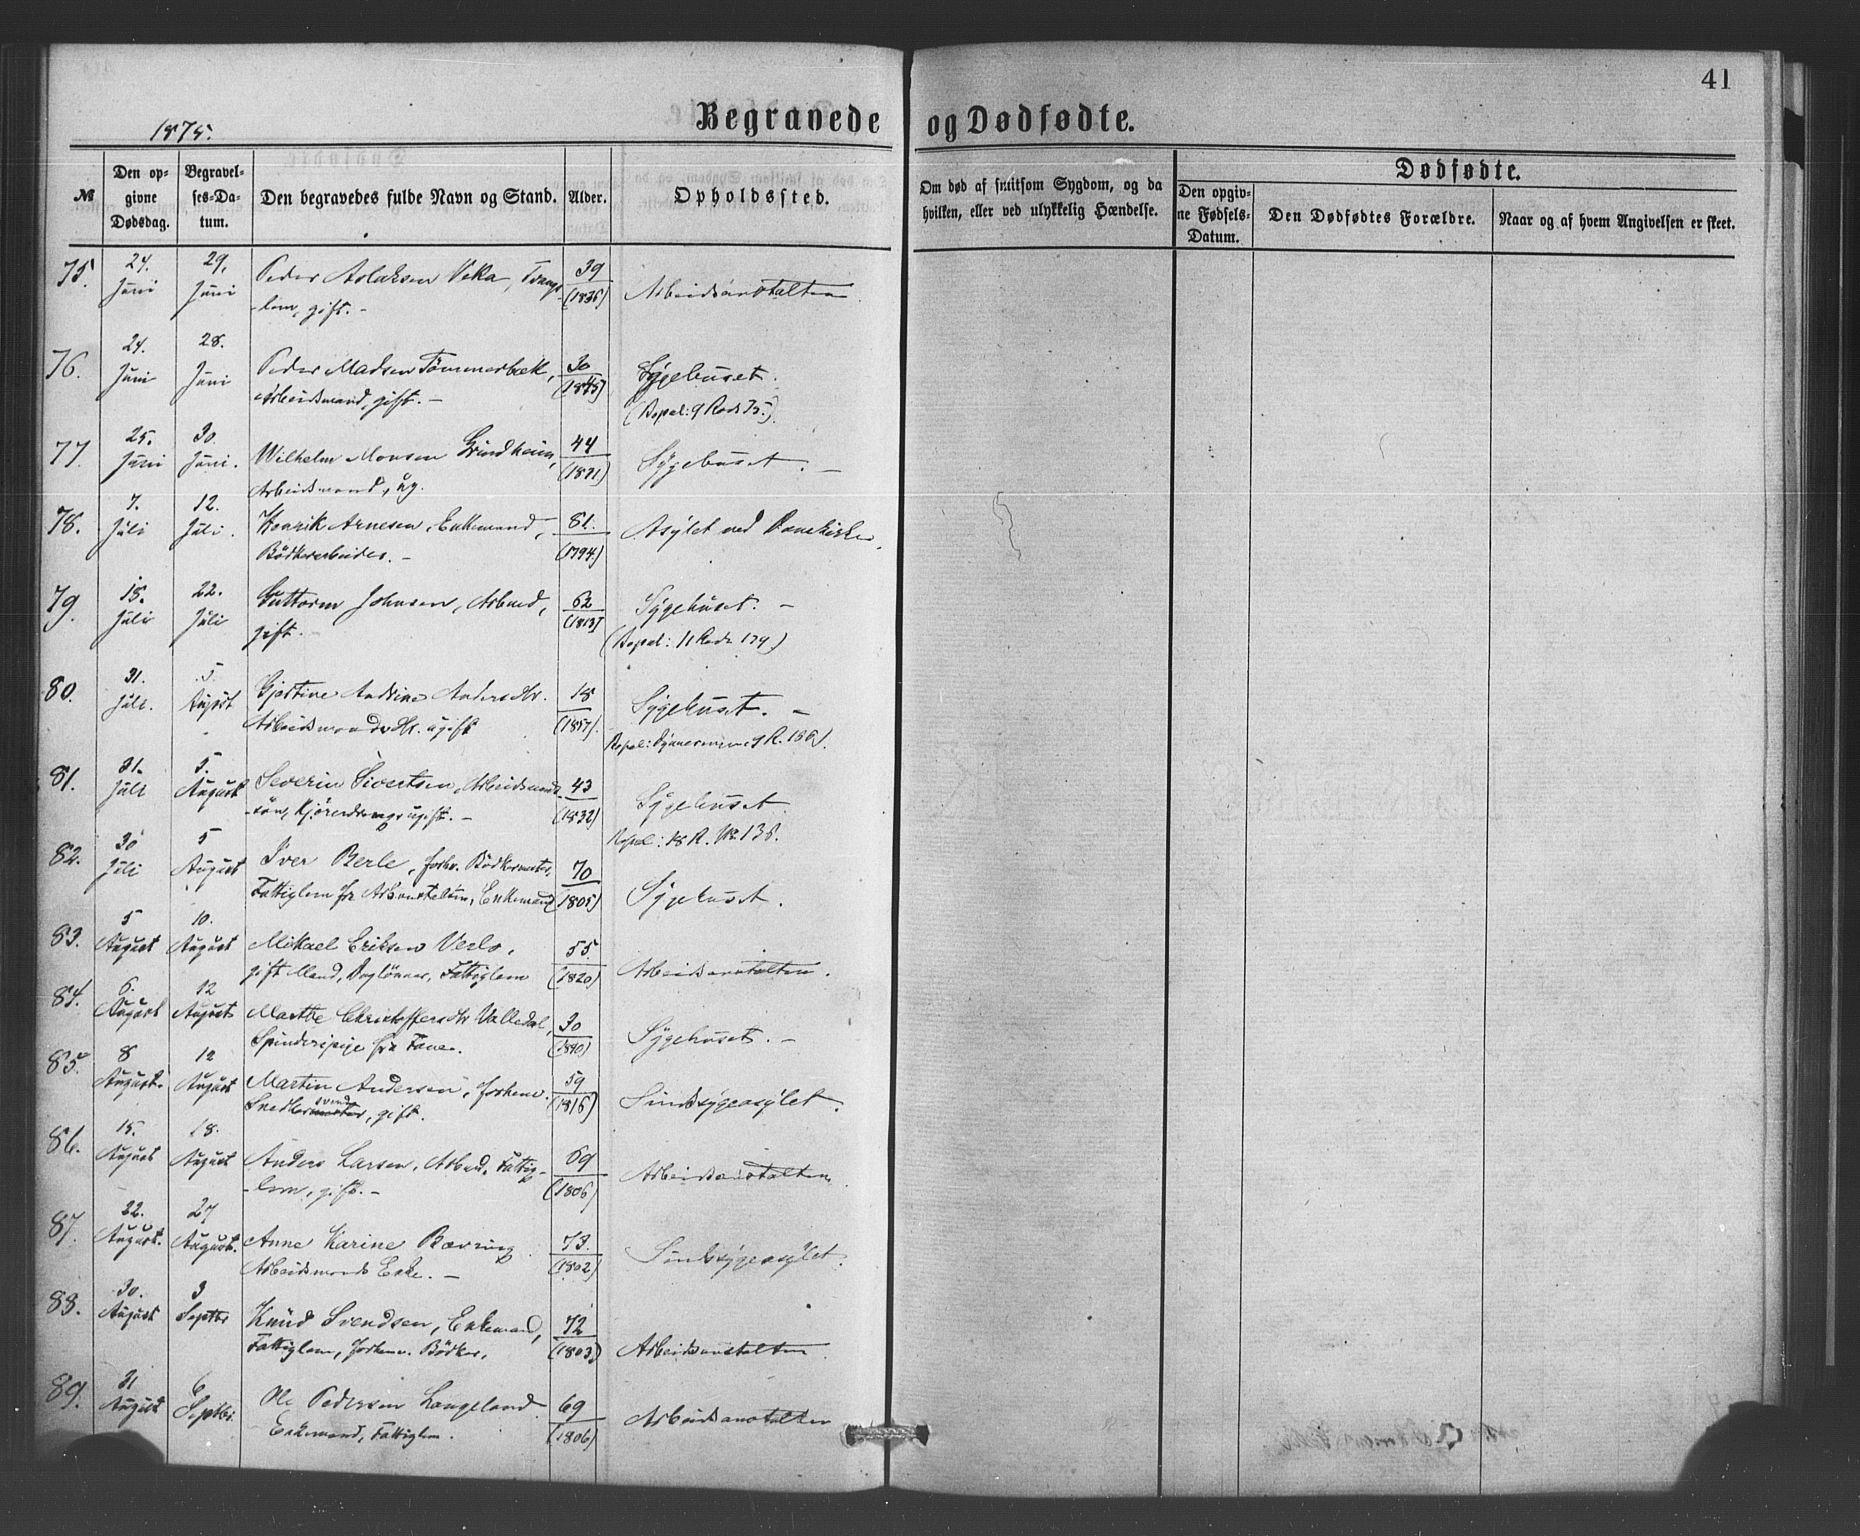 41
Begravede og Dødfødte.
1875.
№
Den opgivne Dødsdag.
Begravelses-Datum.
Den begravedes fulde Navn og Stand.
Alder.
Opholdssted.
Om død af smitsom Sygdom, og da hvilken, eller ved ulykkelig Hændelse.
Dødfødte.
Den opgivne Fødsels-Datum.
Den Dødfødtes Forældre.
Naar og af hvem Angivelsen er skeet.
75. 24. Juni 29. Juni Peder Aslaksen Veka, Tvangs- 39 Arbeidsanstalten
-lem, gift. - (1836)
76. 24. Juni 28. Juni Peder Madsen Tømmerbæk, 30 Sygehuset.
Arbeidsmand, gift. - (1845) (Bopæl: 9 Rode 75.)
77. 25. Juni 30. Juni. Wilhelm Monsen Grindheim, 44 Sygehuset. -
Arbeidsmand, ug. (1831)
78. 7. Juli 12. Juli. Henrik Arnesen, Enkemand, 81. Asylet ved Domkirken.
Bødkerarbeider. - (1794)
79. 15. Juli 22. Juli Guttorm Johnsen, Arbmd, 62 Sygehuset. -
gift. (1813) (Bopæl: 11 Rode 174)
80. 31. Juli. 5. August Gjertine Andrine Andersdtr. 18 Sygehuset. -
Arbeidsmands Dtr. ugift (1857). Bopæl: 9 R. 166).
81. 31. Juli 5. August Severin Sivertsen, Arbeidsmands- 43 Sygehuset
-søn, Kjøredreng, ugift. - (1832) Bopæl: 18 R. No 138.
82. 30 Juli 5 August Iver Berle, forhv. Bødkermester, 70 Sygehuset.
Fattiglem fra Arbanstalten, Enkemand (1805)
83. 5 August 10. August Mikael Eriksen Verlo, 55. Arbeidsanstalten.
gift Mand, Daglønner, Fattiglem (1820)
84. 6. August 12 August Marthe Christoffersdtr Valledal, 30 Sygehuset. -
Spinderipige fra Fane. (1840)
85. 8 August. 12 August Martin Andersen, forhenv. 59 Sindssygeasylet.
Snedkersvend, gift. (1816)
86. 15. August 18. August Anders Larsen, Arbmd, Fattig- 69 Arbeidsanstalten
-lem, gift. - (1806)
87. 22. August. 27 August. Anne Karine Bøvring 73. Sindssygeasylet.
Arbeidsmands Enke. - (1802)
88. 30. August 3 Septbr Knud Svendsen, Enkemand, 72 Arbeidsanstalten
Fattiglem, forhenv. Bødker. (1803)
89. 31 August 6 Septbr. Ole Pedersen Langeland. 69 Arbeidsanstalten
Enkemand, Fattiglem. (1806)